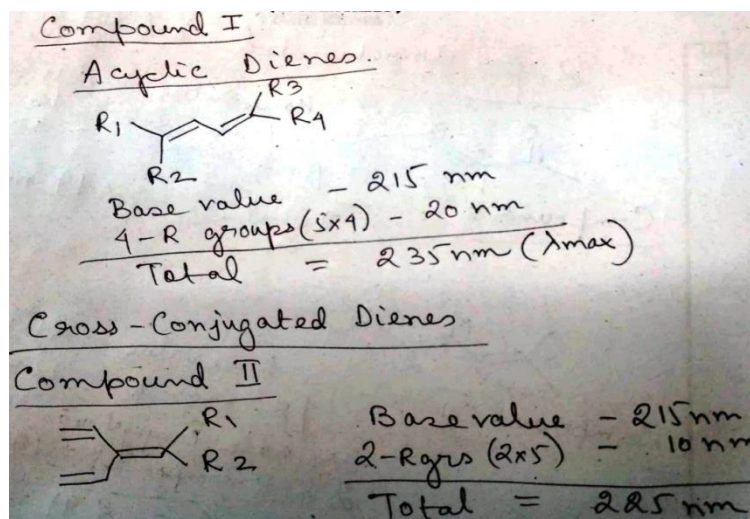 Compound I
Acyclic Dienes
R3
R1
R4
R2
Base value - 215 nm
4-R groups (5x4) - 20 nm
Total = 235nm (λmax)
Cross-Conjugated Dienes
Compound II
R1
R2
Base value - 215nm
2-Rgrs (2x5) - 10 nm
Total = 225 nm